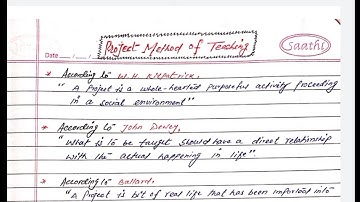 Project Method of Teaching
saathi
Date ___/___/___
* According to W.H. Kilpatrick,
"A project is a whole-hearted purposeful activity proceeding
in a social environment"
* According to John Dewey,
"What is to be taught should have a direct relationship
with the actual happening in life".
* According to Ballard,
"A Project is bit of real life that has been imported into